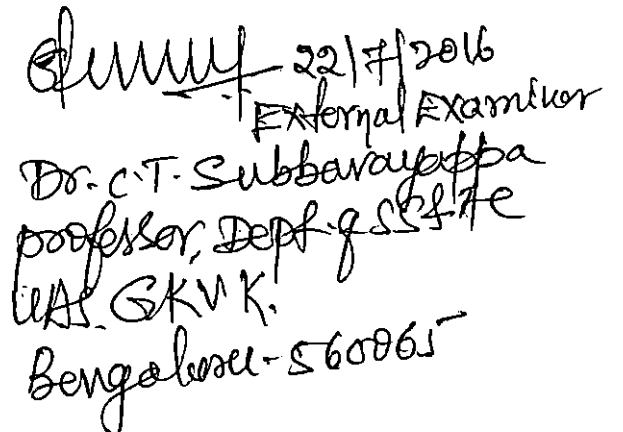 22/7/2016
External Examiner
Dr. C.T. Subbarayappa
professor, Dept. of SS&AC
UAS. GKVK.
Bengaluru - 560065